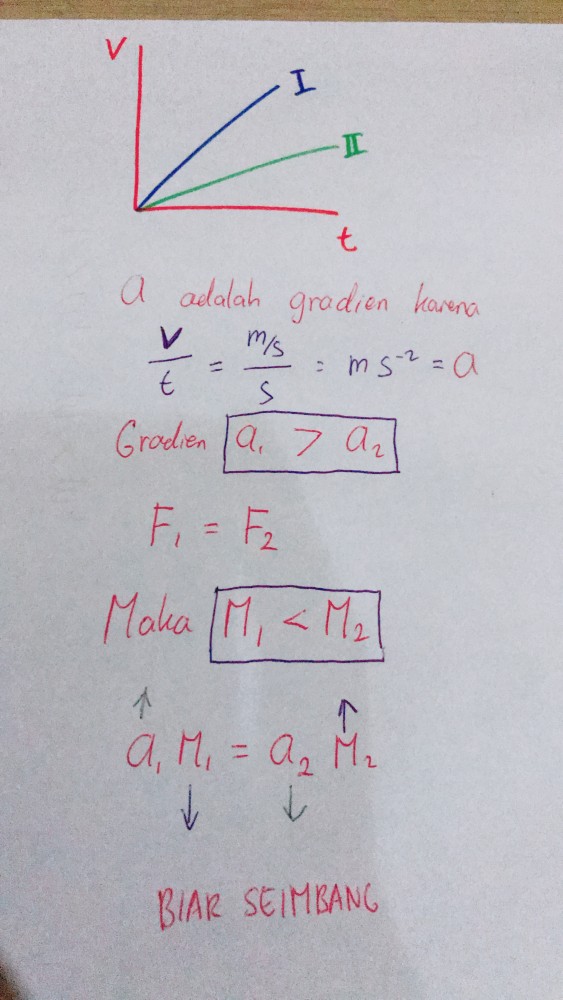 V
I
II
t
a adalah gradien karena
V/t = m/s/s = m s⁻² = a
Gradien a₁ > a₂
F₁ = F₂
Maka M₁ < M₂
↑ ↑
a₁ M₁ = a₂ M₂
↓ ↓
BIAR SEIMBANG